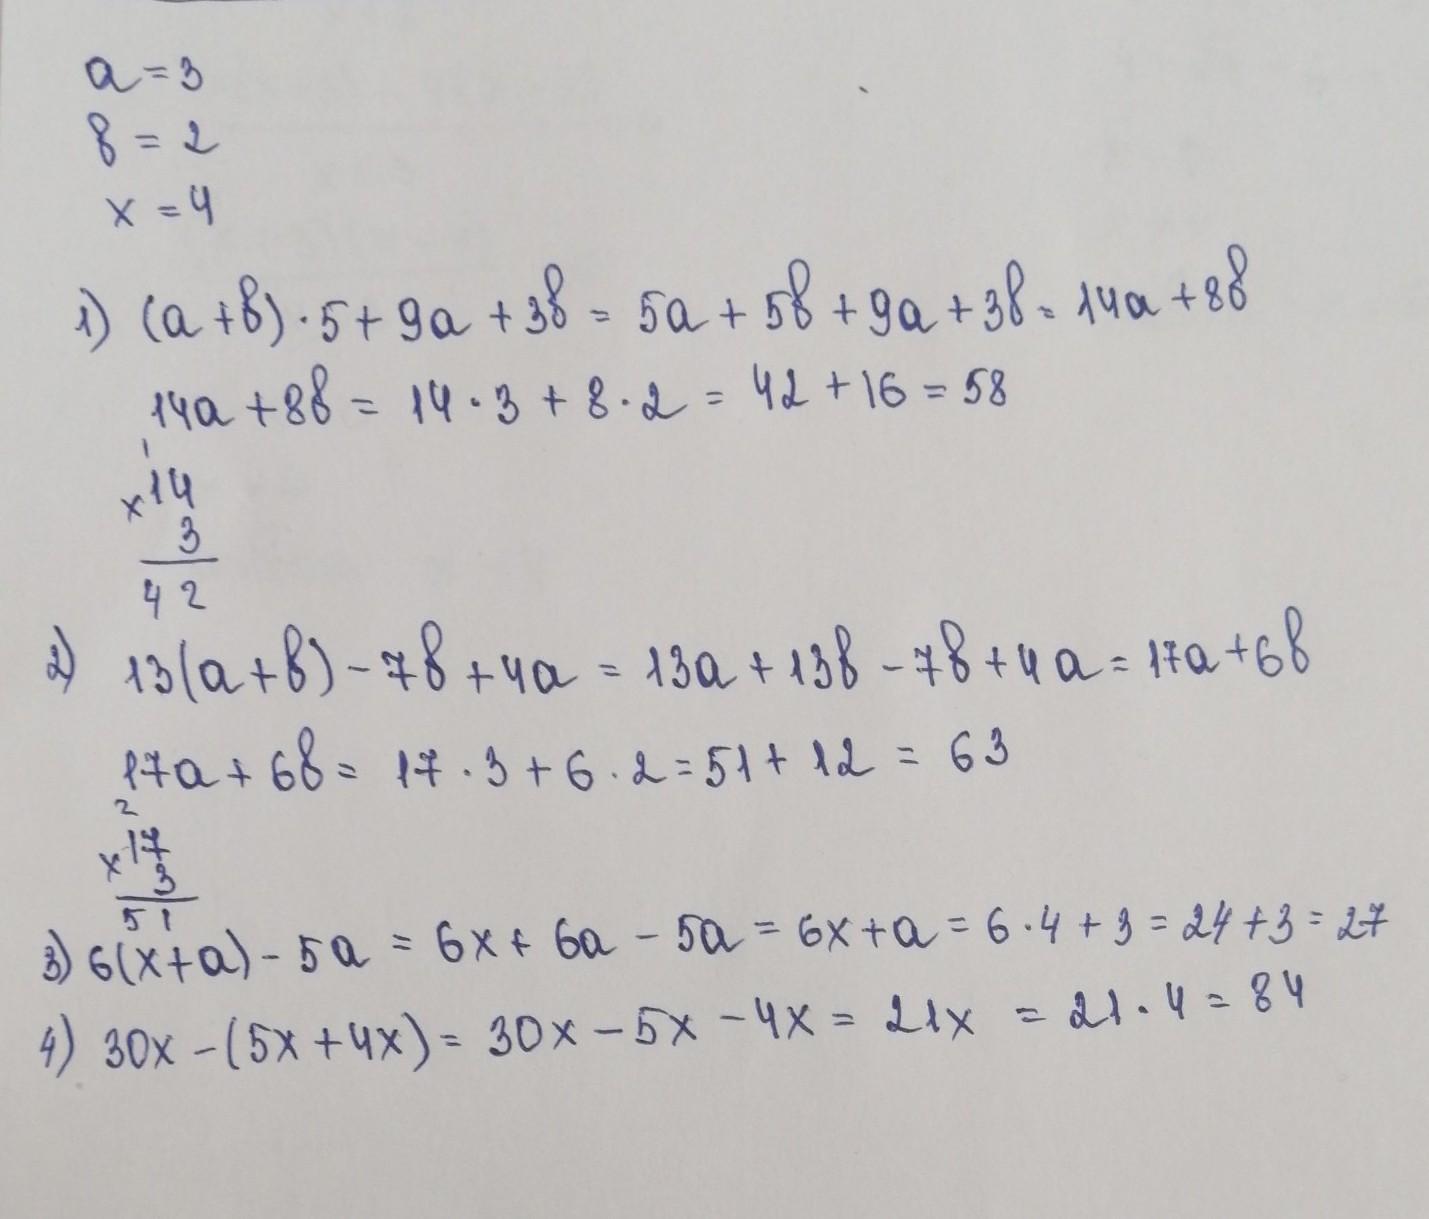 a = 3
b = 2
x = 4
1) (a + b) · 5 + 9a + 3b = 5a + 5b + 9a + 3b = 14a + 8b
14a + 8b = 14 · 3 + 8 · 2 = 42 + 16 = 58
1
x 14
3
42
2) 13(a + b) - 7b + 4a = 13a + 13b - 7b + 4a = 17a + 6b
17a + 6b = 17 · 3 + 6 · 2 = 51 + 12 = 63
2
x 17
3
51
3) 6(x + a) - 5a = 6x + 6a - 5a = 6x + a = 6 · 4 + 3 = 24 + 3 = 27
4) 30x - (5x + 4x) = 30x - 5x - 4x = 21x = 21 · 4 = 84